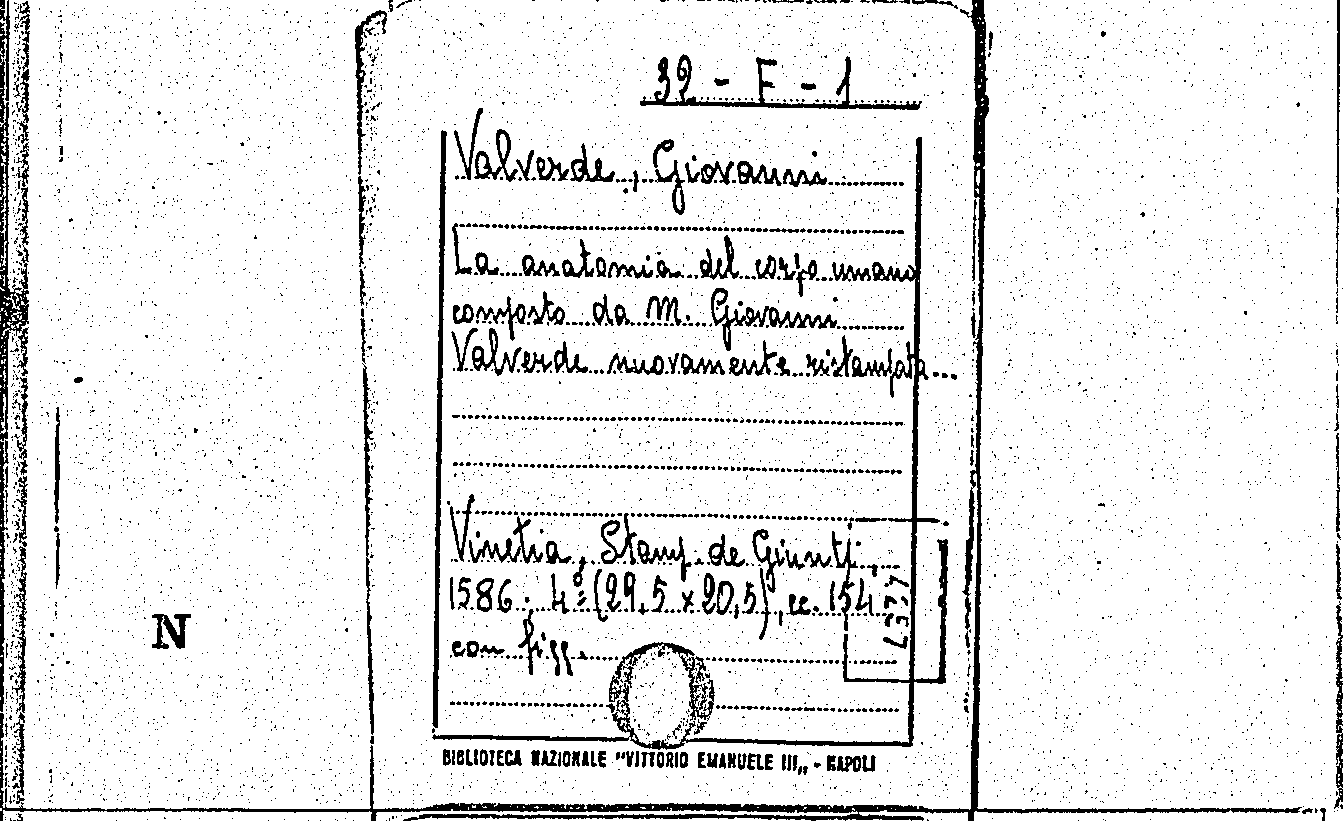 32 - F - 1
Valverde, Giovanni
La anatomia del corpo umano
composto da M. Giovanni
Valverde nuovamente ristampata...
Vinetia, Stamp. de Giunti,
1586. 4º (29,5 x 20,5), cc. 154
con figg.
L377
N
BIBLIOTECA NAZIONALE "VITTORIO EMANUELE III„ - NAPOLI